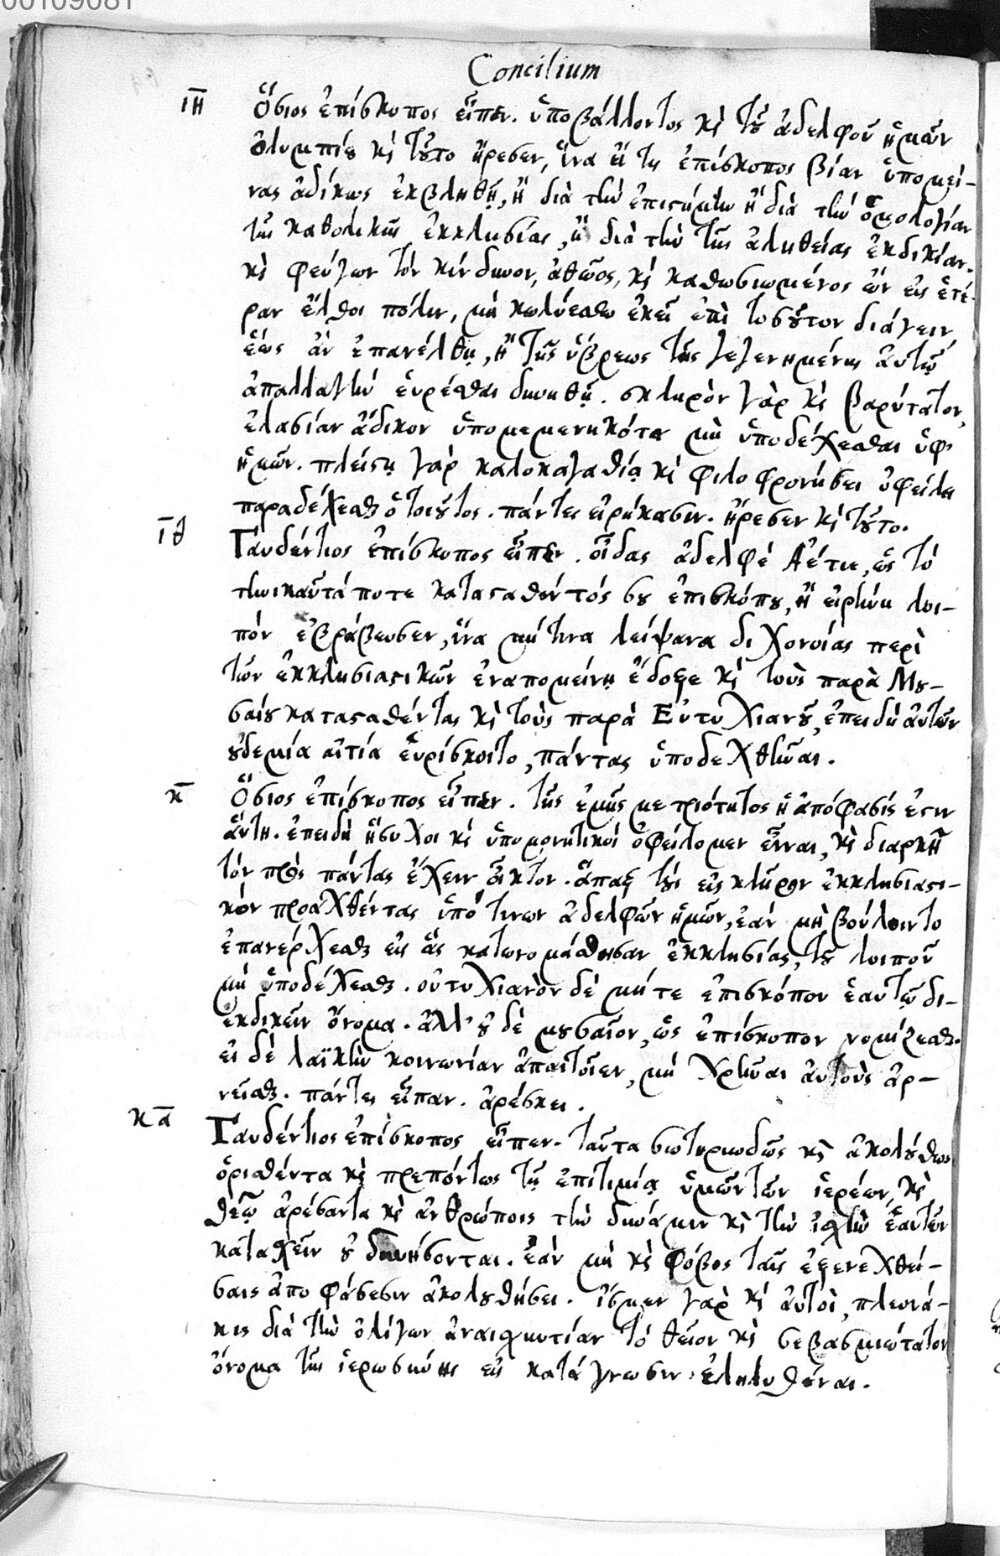 00109081
Concilium
ιη Ὅσιος ἐπίσκοπος εἶπεν. ὑποβάλλοντος κὶ τοῦ ἀδελφοῦ ἡμῶν
ὀλυμπίου κὶ τοῦτο ἤρεσεν, ἵνα εἴ τις ἐπίσκοπος βίαν ὑπομεί-
νας ἀδίκως ἐκβληθῇ, ἢ διὰ τὴν ἐπιστήμην ἢ διὰ τὴν ὁμολογίαν
τῆς καθολικῆς ἐκκλησίας, ἢ διὰ τὴν τῆς ἀληθείας ἐκδικίαν.
κὶ φεύγων τὸν κίνδυνον, ἀθῶος, κὶ καθωσιωμένος ὢν εἰς ἑτέ-
ραν ἔλθοι πόλιν, μὴ κωλυέσθω ἐκεῖ ἐπὶ τοσοῦτον διάγειν
ἕως ἂν ἐπανέλθῃ, ἢ τῆς ὕβρεως τῆς γεγενημένης αὐτῷ
ἀπαλλαγὴν εὑρέσθαι δυνηθῇ. σκληρὸν γὰρ κὶ βαρύτατον
ἐλασίαν ἄδικον ὑπομεμενηκότα μὴ ὑποδέχεσθαι ὑφ'
ἡμῶν. πλείστῃ γὰρ καλοκαγαθίᾳ κὶ φιλοφρονήσει ὀφείλει
παραδέχεσθαι ὁ τοιοῦτος. πάντες εἰρήκασιν. ἤρεσεν κὶ τοῦτο.
ιθ Γαυδέντιος ἐπίσκοπος εἶπεν. οἶδας ἀδελφέ Αέτιε, ὡς τὸ
τηνικαῦτά ποτε κατασταθέντός σου ἐπισκόπου, ἡ εἰρήνη λοι-
πόν ἐβράβευσεν, ἵνα μή τινα λείψανα διχονοίας περὶ
τῶν ἐκκλησιαστικῶν ἐναπομείνῃ ἔδοξε κὶ τοὺς παρὰ Μου-
σαίου κατασταθέντας κὶ τοὺς παρὰ Εὐτυχιανοῦ, ἐπειδὴ αὐτῶν
οὐδεμία αἰτία εὑρίσκοιτο, πάντας ὑποδεχθῆναι.
κ Ὅσιος ἐπίσκοπος εἶπεν. τῆς ἐμῆς μετριότητος ἡ ἀπόφασίς ἐστιν
αὕτη. ἐπειδὴ ἥσυχοι κὶ ὑπομονητικοί ὀφείλομεν εἶναι, κὶ διαρκῆ
τὸν πρὸς πάντας ἔχειν οἶκτον. ἅπαξ τοὺς εἰς κλῆρον ἐκκλησιαστι-
κὸν προαχθέντας ὑπό τινων ἀδελφῶν ἡμῶν, ἐὰν μὴ βούλοιντο
ἐπανέρχεσθαι εἰς ἃς κατωνομάσθησαν ἐκκλησίας, τοῦ λοιποῦ
μὴ ὑποδέχεσθαι. εὐτυχιανὸν δὲ μήτε ἐπισκόπου ἑαυτῷ δι-
εκδικεῖν ὄνομα. ἀλλ' οὐδὲ μουσαῖον, ὡς ἐπίσκοπον νομίζεσθαι.
εἰ δὲ λαϊκὴν κοινωνίαν ἀπαιτοῖεν, μὴ χρῆναι αὐτοὺς ἀρ-
νεῖσθαι. πάντες εἶπαν. ἀρέσκει.
κα Γαυδέντιος ἐπίσκοπος εἶπεν. ταῦτα σωτηριωδῶς κὶ ἀκολούθως
ὁρισθέντα κὶ πρεπόντως τῇ ἐπιτιμίᾳ ὑμῶν τῶν ἱερέων, κὶ
θεῷ ἀρέσαντα κὶ ἀνθρώποις τὴν δύναμιν κὶ τὴν ἰσχὺν ἑαυτῶν
κατασχεῖν οὐ δυνήσονται. ἐὰν μὴ κὶ φόβος ταῖς ἐξενεχθεί-
σαις ἀποφάσεσιν ἀκολουθήσει. ἴσμεν γὰρ κὶ αὐτοὶ, πλεονά-
κις διὰ τὴν ὀλίγων ἀναισχυντίαν τὸ θεῖον κὶ σεβασμιώτατον
ὄνομα τῆς ἱερωσύνης εἰς κατάγνωσιν ἐληλυθέναι.